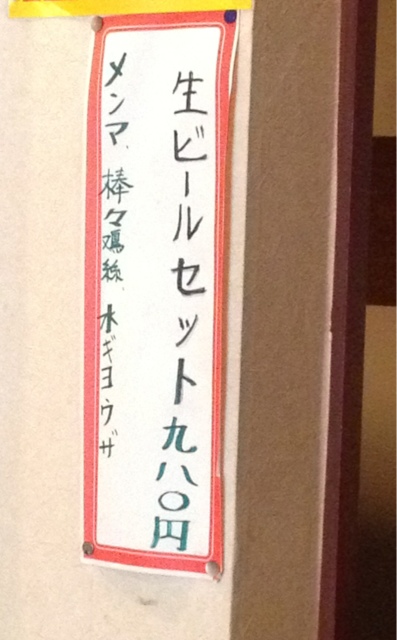 生ビールセット九八〇円
メンマ、棒々鶏絲、水ギョウザ